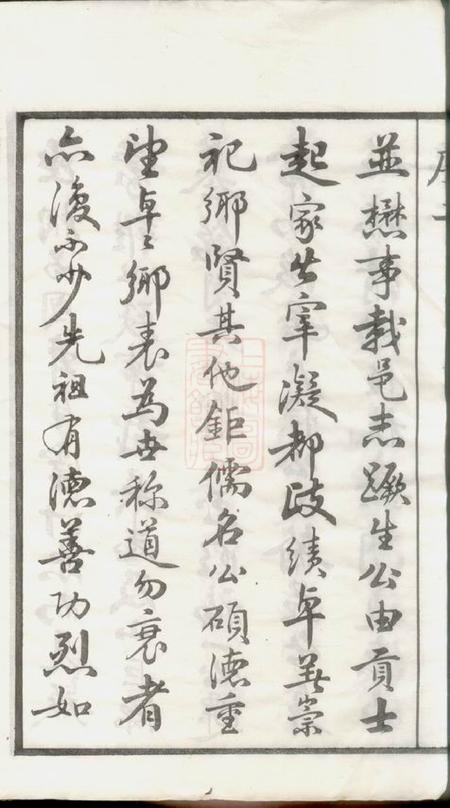 並懋事載邑志蹶生公由貢士
起家出宰凝都政績卓異崇
祀鄉賢其他鉅儒名公碩德重
望卓卓鄉表為世称道勿衰者
亦復不少先祖有德善功烈如